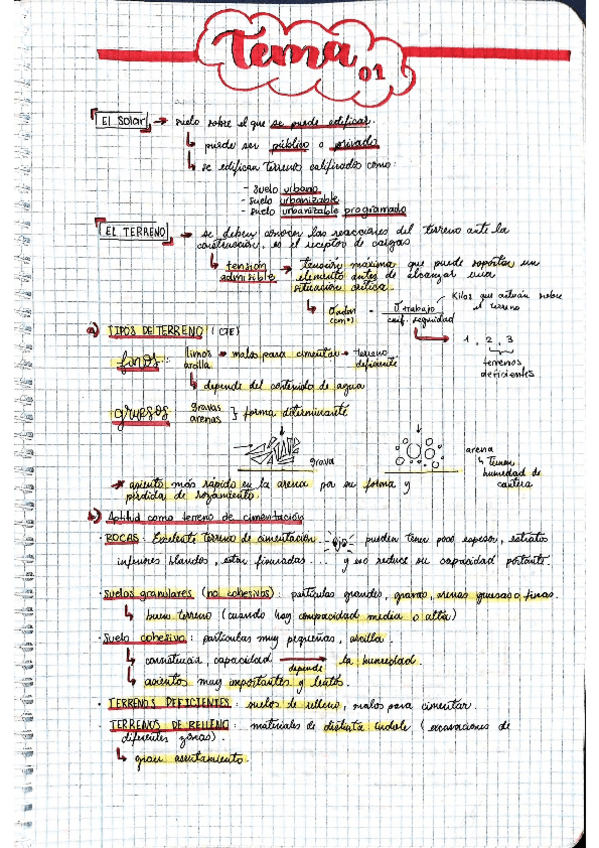 Tema 01
EL SOLAR → suelo sobre el que se puede edificar.
↳ puede ser público o privado
↳ se edifican terreno calificados como:
- suelo urbano
- suelo urbanizable
- suelo urbanizable programado
EL TERRENO → se deben conocer las reacciones del terreno ante la
construcción, es el receptor de cargas
↳ tensión → tensión máxima que puede soportar un
admisible elemento antes de alcanzar una
situación crítica.
Kilos que actúan sobre
el terreno
↳ σadm = σtrabajo
coef. seguridad
↳ 1, 2, 3
terrenos
deficientes
a) TIPOS DE TERRENO (CTE)
finos: limos → malos para cimentar → terreno
arcilla deficiente
↳ depende del contenido de agua
gruesos gravas } forma determinante
arenas
grava
arena
↳ Tienen
humedad de
cantera
* asientos más rápido en la arena por su forma y
pérdida de rozamiento.
b) Aptitud como terreno de cimentación
· ROCAS: Excelente terreno de cimentación. ojo pueden tener poco espesor, estratos
inferiores blandos, estar fisuradas... y eso reduce su capacidad portante.
· Suelos granulares (no cohesivos): partículas grandes, arenas gruesas o finas.
↳ buen terreno (cuando hay compacidad media o alta)
· Suelo cohesivo: partículas muy pequeñas, arcilla.
↳ consistencia, capacidad → la humedad.
depende
↳ asientos muy importantes y lentos.
· TERRENOS DEFICIENTES: suelos de relleno, malos para cimentar.
TERRENOS DE RELLENO: materiales de distinta índole (excavaciones de
diferentes zonas).
↳ gran asentamiento